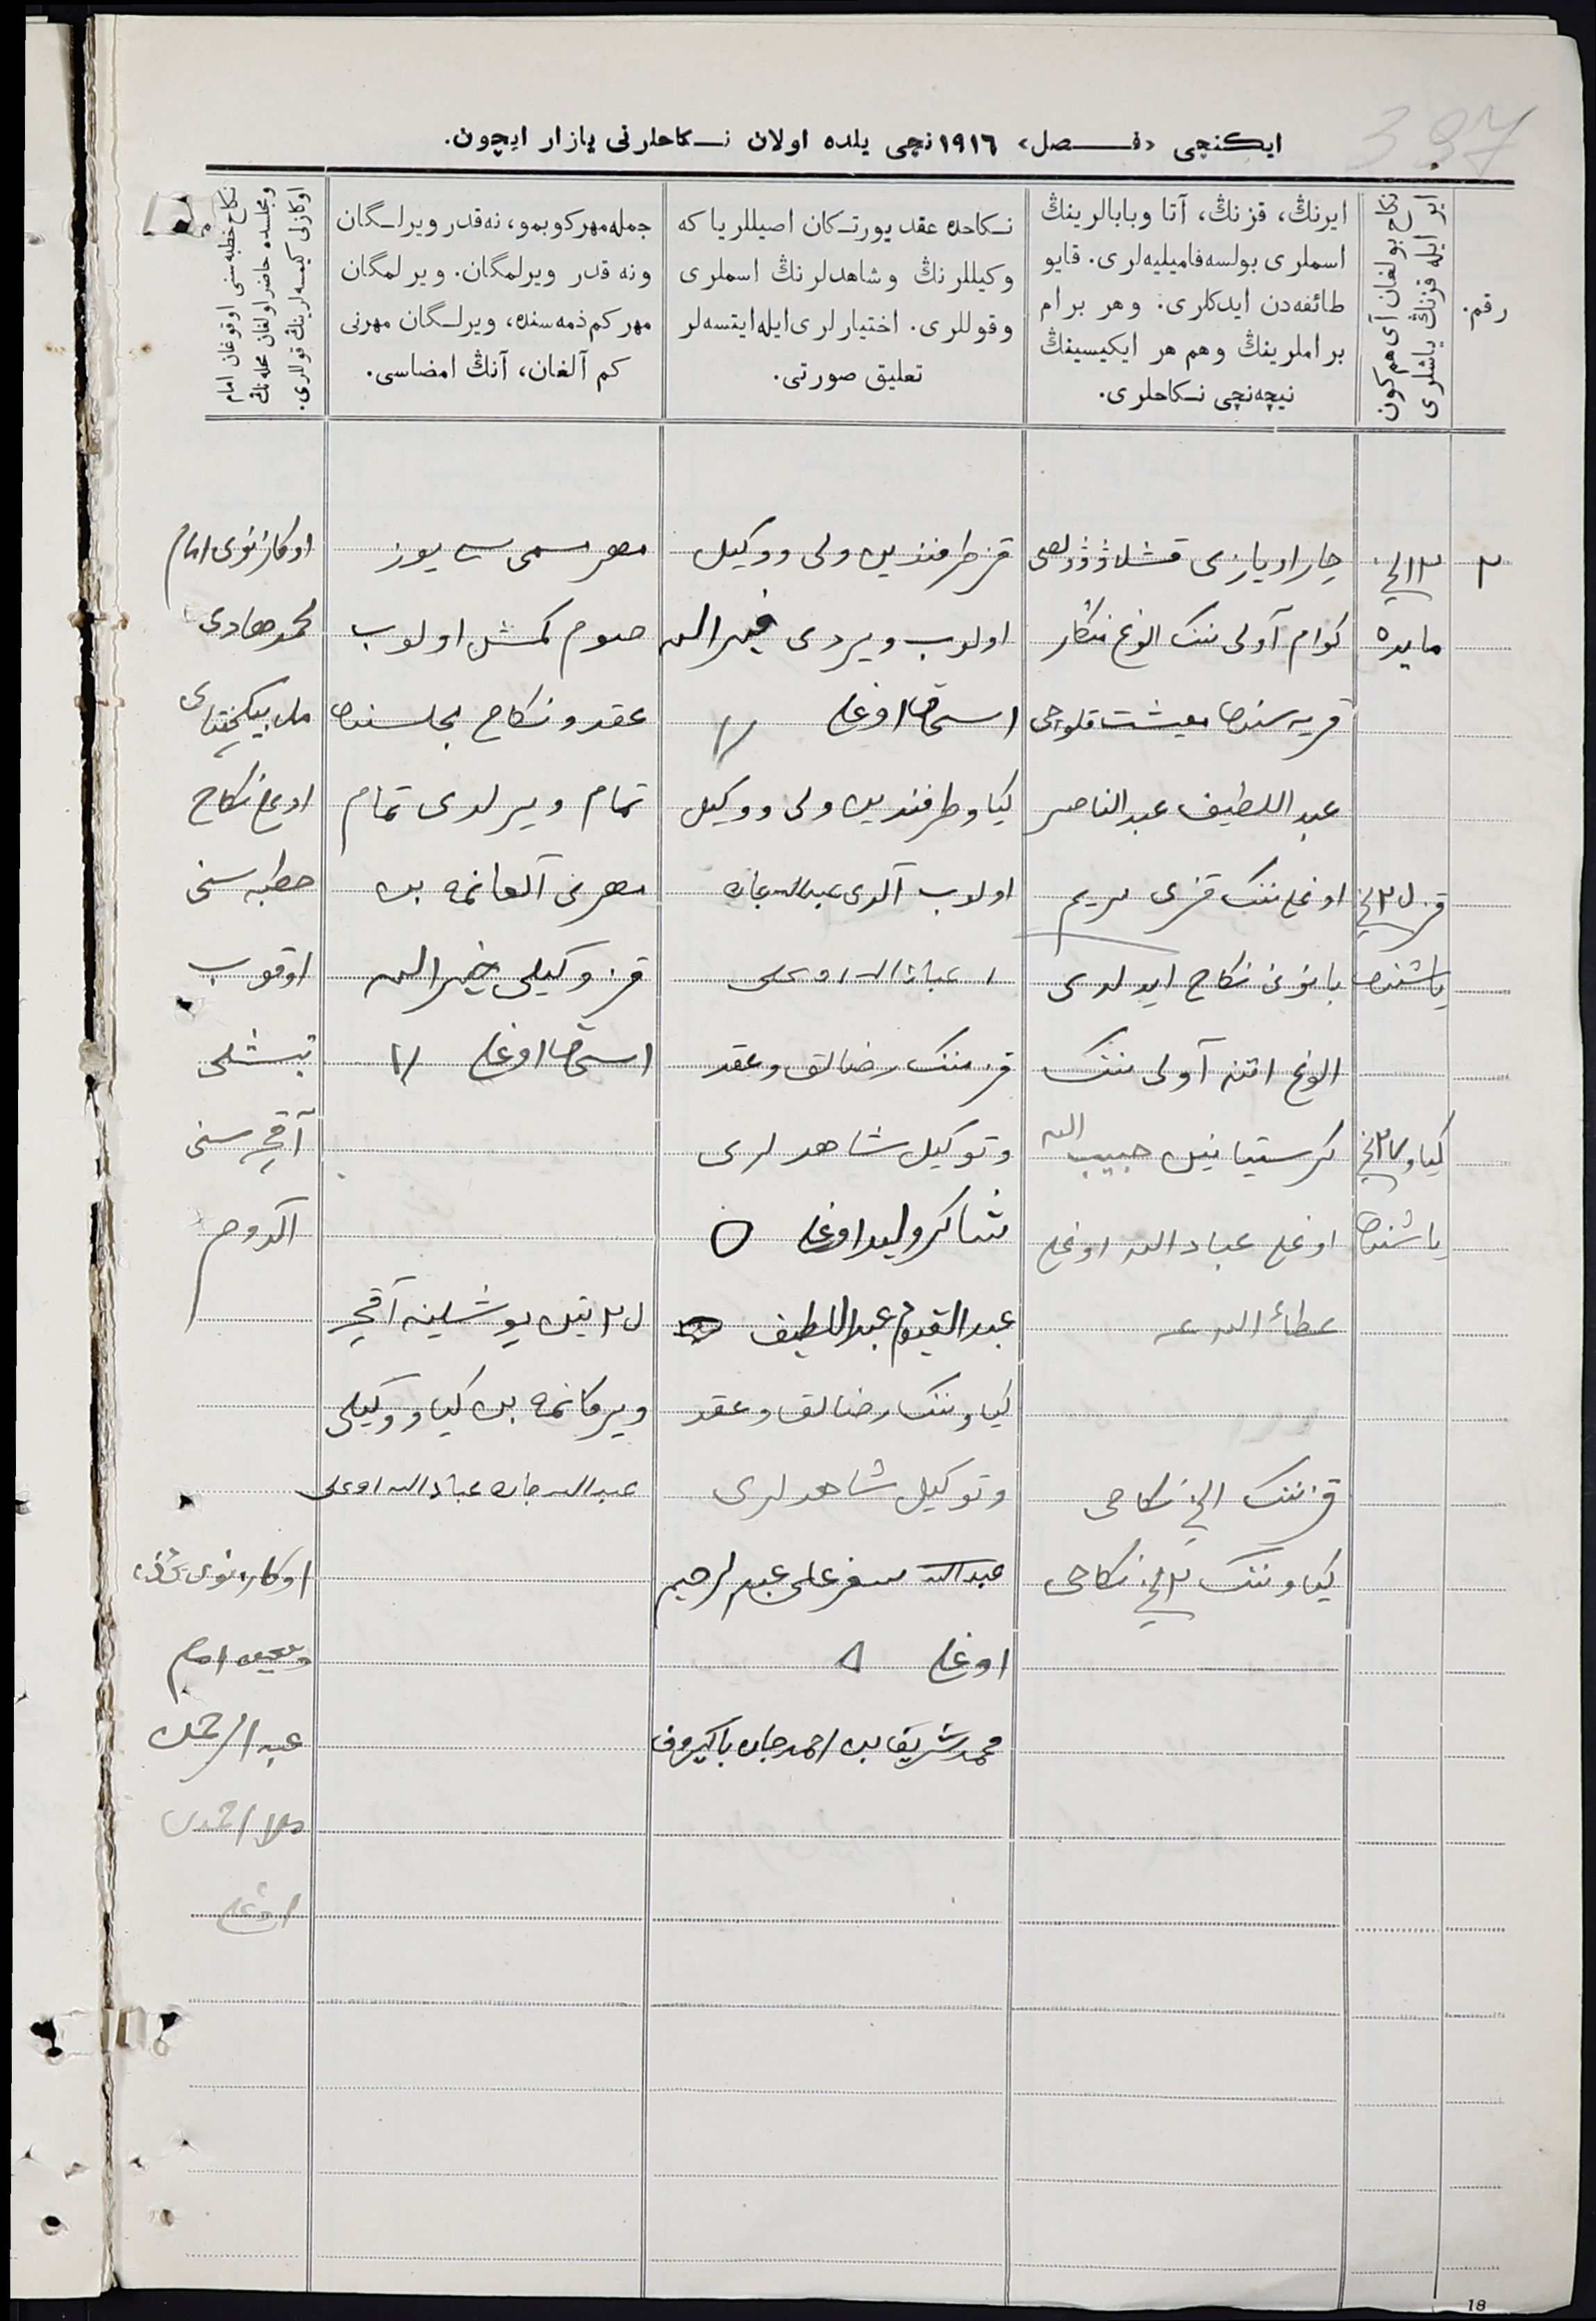 397
ایكنچی «فصل» ١٩١٦نچی یلده اولان نكاحلرنی یازار ایچون.
رقم.
نكاح بولغان آی هم كون
ایر ایله قزنڭ یاشلری
ایرنڭ، قزنڭ، آتا وبابالرینڭ
اسملری بولسه فامیلیه‌لری. قایو
طائفه‌دن ایدكلری. وهر برام
براملرینڭ وهم هر ایكیسینڭ
نیچه‌نچی نكاحلری.
نكاحده عقد یورتكان اصیللریا كه
وكیللرنڭ وشاهدلرنڭ اسملری
وقوللری. اختیارلری ایله ایتسه‌لر
تعلیق صورتی.
جمله مهر كوبمو، نه‌قدر ویرلگان
ونه قدر ویرلمگان. ویرلمگان
مهر كم ذمه‌سنده، ویرلگان مهرنی
كم آلغان، آنڭ امضاسی.
نكاح خطبه‌سنی اوقوغان امام
ومجلسده حاضر اولغان محله‌نڭ
اوكازلی كیمسه‌لرینڭ قوللری.
٢
١٣نچی
مایده
قز ٢٠نچی
یاشنده
كیاو ٢٧نچی
یاشنده
چار اویازی قشلاو وولصی
كوام آولی ننك الوغ منكار
قریه سنده معیشت قلوچی
عبد اللطیف عبد الناصر
اوغلی ننك قزی مریم
بانونی نكاح ایدلدی
الوغ اتنه آولی ننك
كرستیانین حبیب الله
اوغلی عباد الله اوغلی
عطاء الله غه
قزننك ١نچی نكاحی
كیاوننك ٢نچی نكاحی
قز طرفندین ولی ووكیل
اولوب ویردی خیر الله
اسحاق اوغلی
كیاو طرفندین ولی ووكیل
اولوب آلدی عبدالله جان
عباد الله اوغلی
قزننك رضالق وعقد
وتوكیل شاهدلری
شاكر ولید اوغلی
عبد القیوم عبد اللطیف
كیاوننك رضالق وعقد
وتوكیل شاهدلری
عبد الله سفر علی عبد الرحیم
اوغلی
محمد شریف بن احمد جان باكیروف
مهر مسمی یوز
صوم كمش اولوب
عقد ونكاح مجلسنده
تمام ویرلدی تمام
مهرنی آلغانمه بن
قز وكیلی خیر الله
اسحاق اوغلی
٢٠ تین پوشلینه آقچه
ویركانمه بن كیاو وكیلی
عبد الله جان عباد الله اوغلی
اوكازنوی امام
محمد هادی
ملا بیكختای
اوغلی نكاح
خطبه سنی
اوقوب
تیشلی
آقچه سنی
الدوم
اوكازنوی
امام
عبد الرحمن
ملا احمد
اوغلی
18